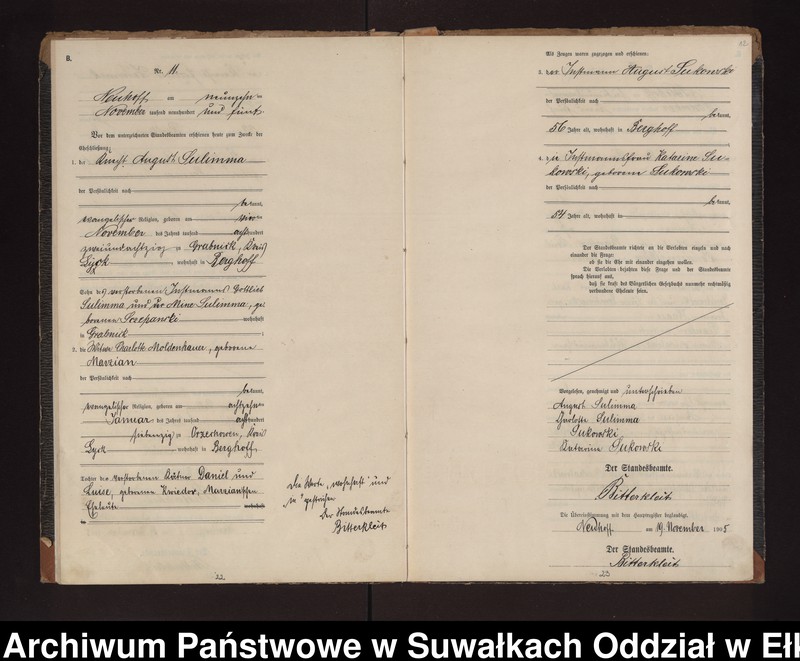 8.
Nr. 11.
Neuhoff am neunzehnten
November tausend neunhundert und fünf.
Vor dem unterzeichneten Standesbeamten erschienen heute zum Zweck der
Eheschließung:
1. der Knecht August Sulimma
der Persönlichkeit nach
bekannt,
evangelischer Religion, geboren am vierten
November des Jahres tausend achthundert
zweiundachtzig zu Grabnick, Kreis
Lyck, wohnhaft in Berghoff
Sohn des verstorbenen Instmanns Gottlieb
Sulimma und der Mine Sulimma, ge-
borenen Sczepanski wohnhaft
in Grabnick
2. die Witwe Charlotte Moldenhauer, geborene
Marzian
der Persönlichkeit nach
bekannt,
evangelischer Religion, geboren am achtzehnten
Januar des Jahres tausend achthundert
siebenzig zu Orzechowen, Kreis
Lyck wohnhaft in Berghoff
Tochter der verstorbenen Kätner Daniel und
Luise, geborenen Kriedor, Marzianschen
Eheleute wohnhaft
in
Die Worte „wohnhaft" und
„in" gestrichen
Der Standesbeamte
Bitterkleit
22
Als Zeugen waren zugezogen und erschienen:
3. der Instmann August Sukowski
der Persönlichkeit nach
bekannt,
56 Jahre alt, wohnhaft in Berghoff
4. die Instmannsfrau Katarine Su-
kowski, geborene Sukowski
der Persönlichkeit nach
bekannt,
54 Jahre alt, wohnhaft in
Der Standesbeamte richtete an die Verlobten einzeln und nach
einander die Frage:
ob sie die Ehe mit einander eingehen wollen.
Die Verlobten bejahten diese Frage und der Standesbeamte
sprach hierauf aus,
daß sie kraft des Bürgerlichen Gesetzbuchs nunmehr rechtmäßig
verbundene Eheleute seien.
Vorgelesen, genehmigt und unterschrieben
August Sulimma
Charlotte Sulimma
Sukowski
Katarina Sukowski
Der Standesbeamte.
Bitterkleit
Die Übereinstimmung mit dem Hauptregister beglaubigt.
Neuhoff am 19. November 1905
Der Standesbeamte.
Bitterkleit
23
Archiwum Państwowe w Suwałkach Oddział w Ełk